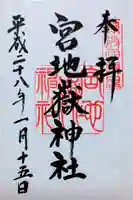 奉拝
宮地嶽神社
平成二十八年一月十五日